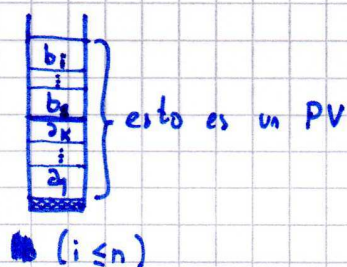 b_i
⋮
b_1
a_k
⋮
a_1
esto es un PV
(i ≤ n)